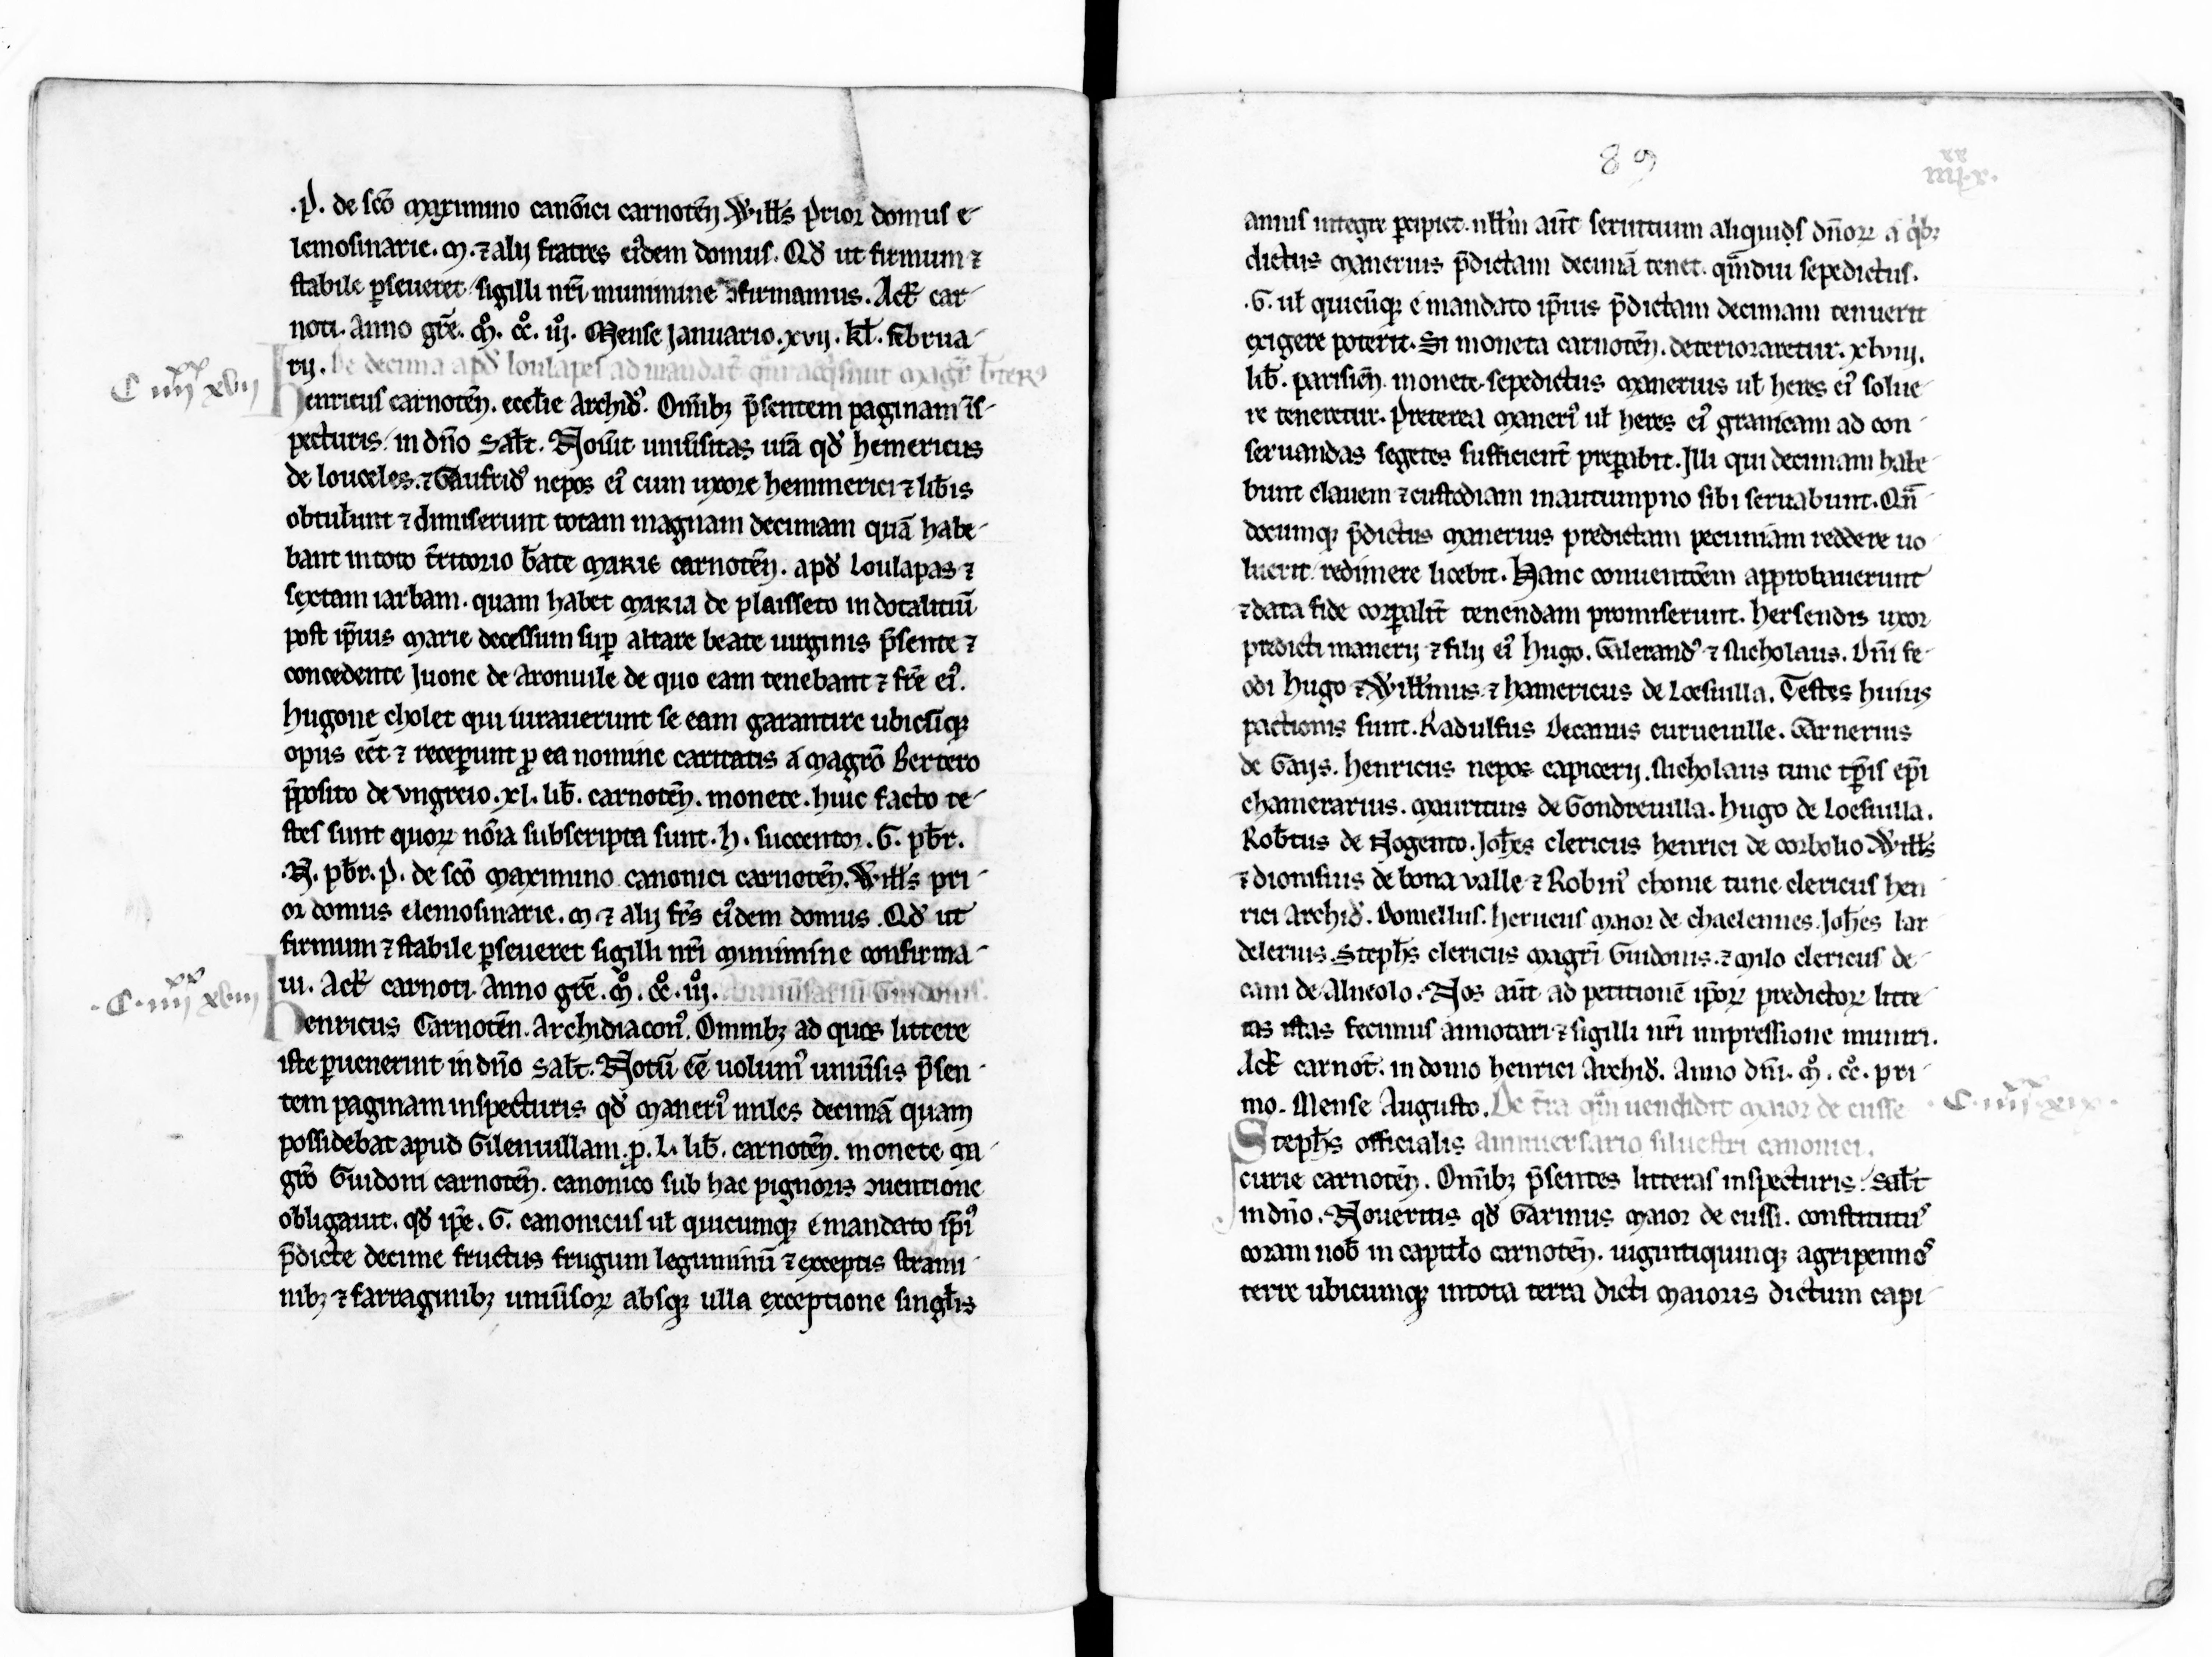 .P. de sc̄o maximino canōici carnotēn. Will̄s prior domus e-
lemosinarie. M. ⁊ alij fratres eiꝰdem domus. Qd̄ ut firmum ⁊
stabile ꝑseueret sigilli nr̄i munimine ꝯfirmamus. Act̄ car-
noti. Anno gr̄e. mͦ. ccͦ. iijͦ. Mense Januario. xvij. kl̄. februa-
rij. De decima apd̄ loulapes ad mandat̄
C iiijˣˣ xvij
henricus carnotēn. eccl̄ie Archid̄. Omībꝫ p̄sentem paginam īs-
pecturis in dn̄o sal̄t. Nou̅it uniu̅sitas ur̄a qd̄ hemericus
de louceles. ⁊ Gaufridꝰ nepos eiꝰ cum uxore hemmerici ⁊ lib̄is
obtul̄unt ⁊ dimiserunt totam magnam decimam quā habe-
bant in toto t̄ritorio b̄ate marie carnotēn. apd̄ loulapas ⁊
sextam iarbam. quam habet maria de plaisseto in dotalitiū
post ip̄ius marie decessum suꝑ altare beate uirginis p̄sente ⁊
concedente Juone de Aronuile de quo eam tenebant ⁊ fr̄e eiꝰ.
hugone cholet qui iurauerunt se eam garantire ubicūqꝫ
opus eēt ⁊ receperunt ꝓ ea nomine caritatis a magr̄o Bertero
p̄posito de vngreio. xl. lib̄. carnotēn. monete. huic facto te-
stes sunt quoꝝ nōīa subscripta sunt. h. succentor. G. pb̄r.
.N. pb̄r. P. de sc̄o maximino canonici carnotēn. Will̄s pri-
or domus elemosinarie. M. ⁊ alij fr̄s eiꝰdem domus. Qd̄ ut
firmum ⁊ stabile ꝑseueret sigilli nr̄i munimine confirma-
ui. Act̄ carnoti. Anno gr̄e. mͦ. ccͦ. iijͦ. Anniu̅sariū Guidonis.
.C. iiijˣˣ xviij
henricus Carnotēn. Archidiaconꝰ. Omnibꝫ ad quos littere
iste ꝑuenerint in dn̄o sal̄t. Notū eē uolumꝰ uniu̅sis p̄sen-
tem paginam inspecturis qd̄ maneriꝰ miles decimā quam
possidebat apud Gilenuillam. ꝓ. L. lib̄. carnotēn. monete ma-
gr̄o Guidoni carnotēn. canonico sub hac pignoris ꝯuentione
obligauit. qd̄ ip̄e. G. canonicus ul̄ quicumqꝫ e mandato ip̄iꝰ
p̄dicte decime fructus frugum leguminū ⁊ exceptis strami-
nibꝫ ⁊ farraginibꝫ uniu̅soꝝ absqꝫ ulla exceptione singl̄is
89
iiijˣˣ.x.
annis integre ꝑcipiet. nll̄m aūt seruitium aliquid dn̄oꝝ a qⁱbꝫ
dictus manerius p̄dictam decimā tenet. qᵃmdiu sepedictus.
.G. ul̄ quicūqꝫ e mandato ip̄ius p̄dictam decimam tenuerit
exigere poterit. Si moneta carnotēn. deterioraretur. xlviij.
lib̄. parisien̄. monete sepedictus manerius ul̄ heres eiꝰ solue-
re teneretur. Preterea maneriꝰ ul̄ heres eiꝰ granicam ad con-
seruandas segetes sufficient̄ preꝑabit. Illi qui decimam habe-
bunt clauem ⁊ custodiam in autumpno sibi seruabunt. Qn̄-
documqꝫ p̄dictus manerius predictam pecuniam reddere uo-
luerit redimere licebit. Hanc conuentōem approbauerunt
⁊ data fide corꝑalit̄ tenendam promiserunt. hersendis uxor
predicti manerij ⁊ filij eiꝰ hugo. Galerandꝰ ⁊ Nicholaus. Dn̄i fe-
odi hugo ⁊ Will̄mus ⁊ hamericus de Loesuilla. Testes huius
pactionis sunt. Radulfus Decanus curueuille. Garnerius
de Gays. henricus nepos capicerij. Nicholaus tunc tp̄is ep̄i
chamerarius. mauritius de Gondreuilla. hugo de Loesuilla.
Rob̄tus de Nogento. Joh̄es clericus henrici de corbolio Will̄s
⁊ dionisius de bona valle ⁊ Robinꝰ chome tunc clericus hen
rici Archid̄. Domellus. herueus maior de chaelennes. Joh̄es lar
delerius. Steph̄s clericus magr̄i Guidonis. ⁊ milo clericus de-
cani de Alneolo. Nos aūt ad petitionē ip̄oꝝ predictoꝝ litte-
ras istas fecimus annotari ⁊ sigilli nr̄i impressione muniri.
Act̄ carnot̄. in domo henrici Archid̄. Anno dn̄i. mͦ. ccͦ. pri-
mo. Mense Augusto. De t̄ra qᵃm uendidit maior de cusse
.C. iiijˣˣ xix.
Steph̄s officialis anniuersario siluestri canonici.
curie carnotēn. Omībꝫ p̄sentes litteras inspecturis sal̄t
in dn̄o. Noueritis qd̄ Garinus maior de cussi. constitutꝰ
coram nob̄ in capitl̄o carnotēn. uigintiquinqꝫ agripennos
terre ubicumqꝫ in tota terra dicti maioris dictum capi-